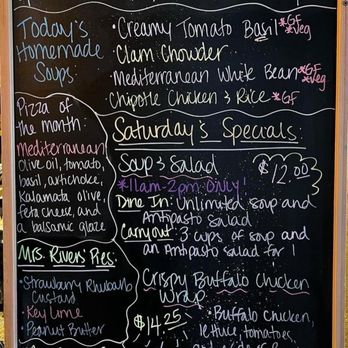 Today's
Homemade
Soups:
• Creamy Tomato Basil *GF
*Veg
• Clam Chowder
• Mediterranean White Bean *GF
*Veg
• Chipotle Chicken & Rice *GF
Pizza of
the month:
Mediterranean
Olive oil, tomato,
basil, artichoke,
Kalamata olive,
feta cheese, and
a balsamic glaze
Mrs. Rivers' Pies:
• Strawberry Rhubarb
Custard
• Key Lime
• Peanut Butter
Saturday's Specials:
Soup & Salad
$12.00
*11am-2pm Only!
Dine In: Unlimited soup and
Antipasto Salad
Carryout: 3 cups of soup and
an Antipasto salad for 1
Crispy Buffalo Chicken
Wrap
$14.25
• Buffalo Chicken,
lettuce, tomatoes,
and